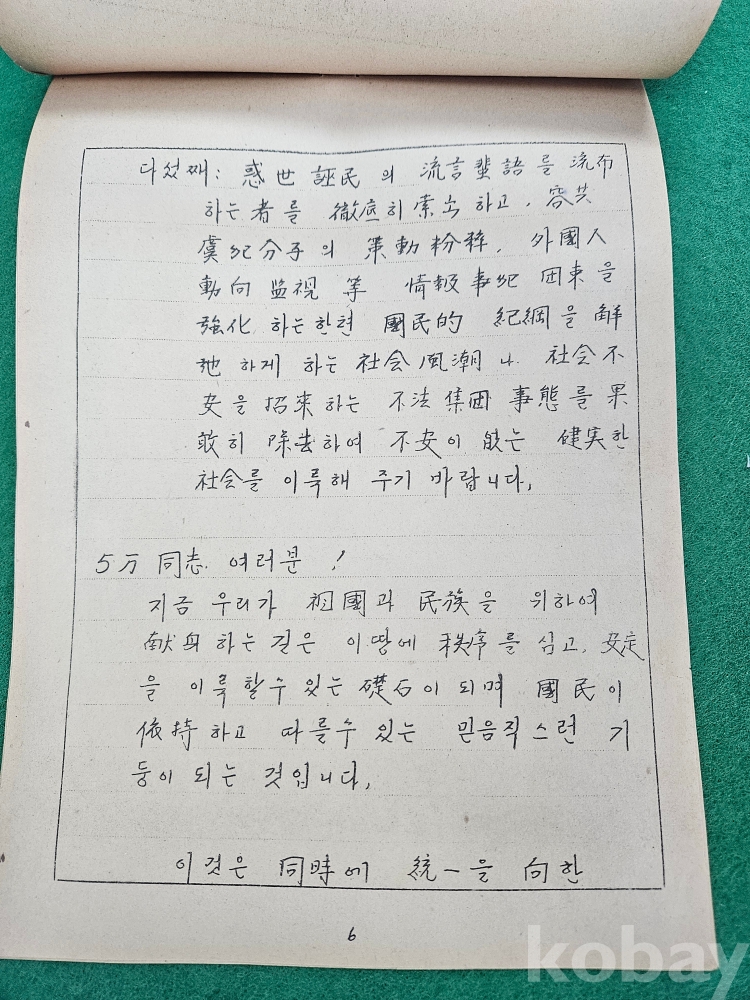 다섯째: 惑世誣民의 流言蜚語를 流布
하는者를 徹底히索出하고, 容共
虞犯分子의 策動粉碎, 外國人
動向 监視 等 情報事犯 団束을
強化 하는한편 國民的 紀綱을 解
弛하게 하는 社会風潮나 社会不
安을 招来하는 不法集団 事態를 果
敢히 除去하여 不安이 없는 健実한
社会를 이룩해 주기 바랍니다.
5万 同志 여러분!
지금 우리가 祖國과 民族을 위하여
献身하는 길은 이땅에 秩序를 심고, 安定
을 이룩할수있는 礎石이 되며 國民이
依持하고 따를수 있는 믿음직스런 기
둥이 되는 것입니다.
이것은 同時에 統一을 向한
6
kobay